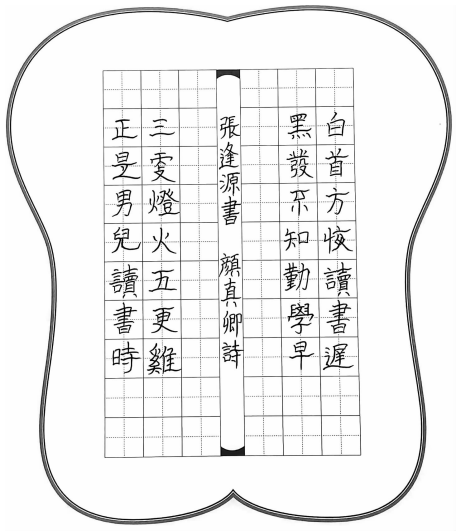 白首方悔讀書遲
黑發不知勤學早
張逢源書 顏真卿詩
三更燈火五更雞
正是男兒讀書時